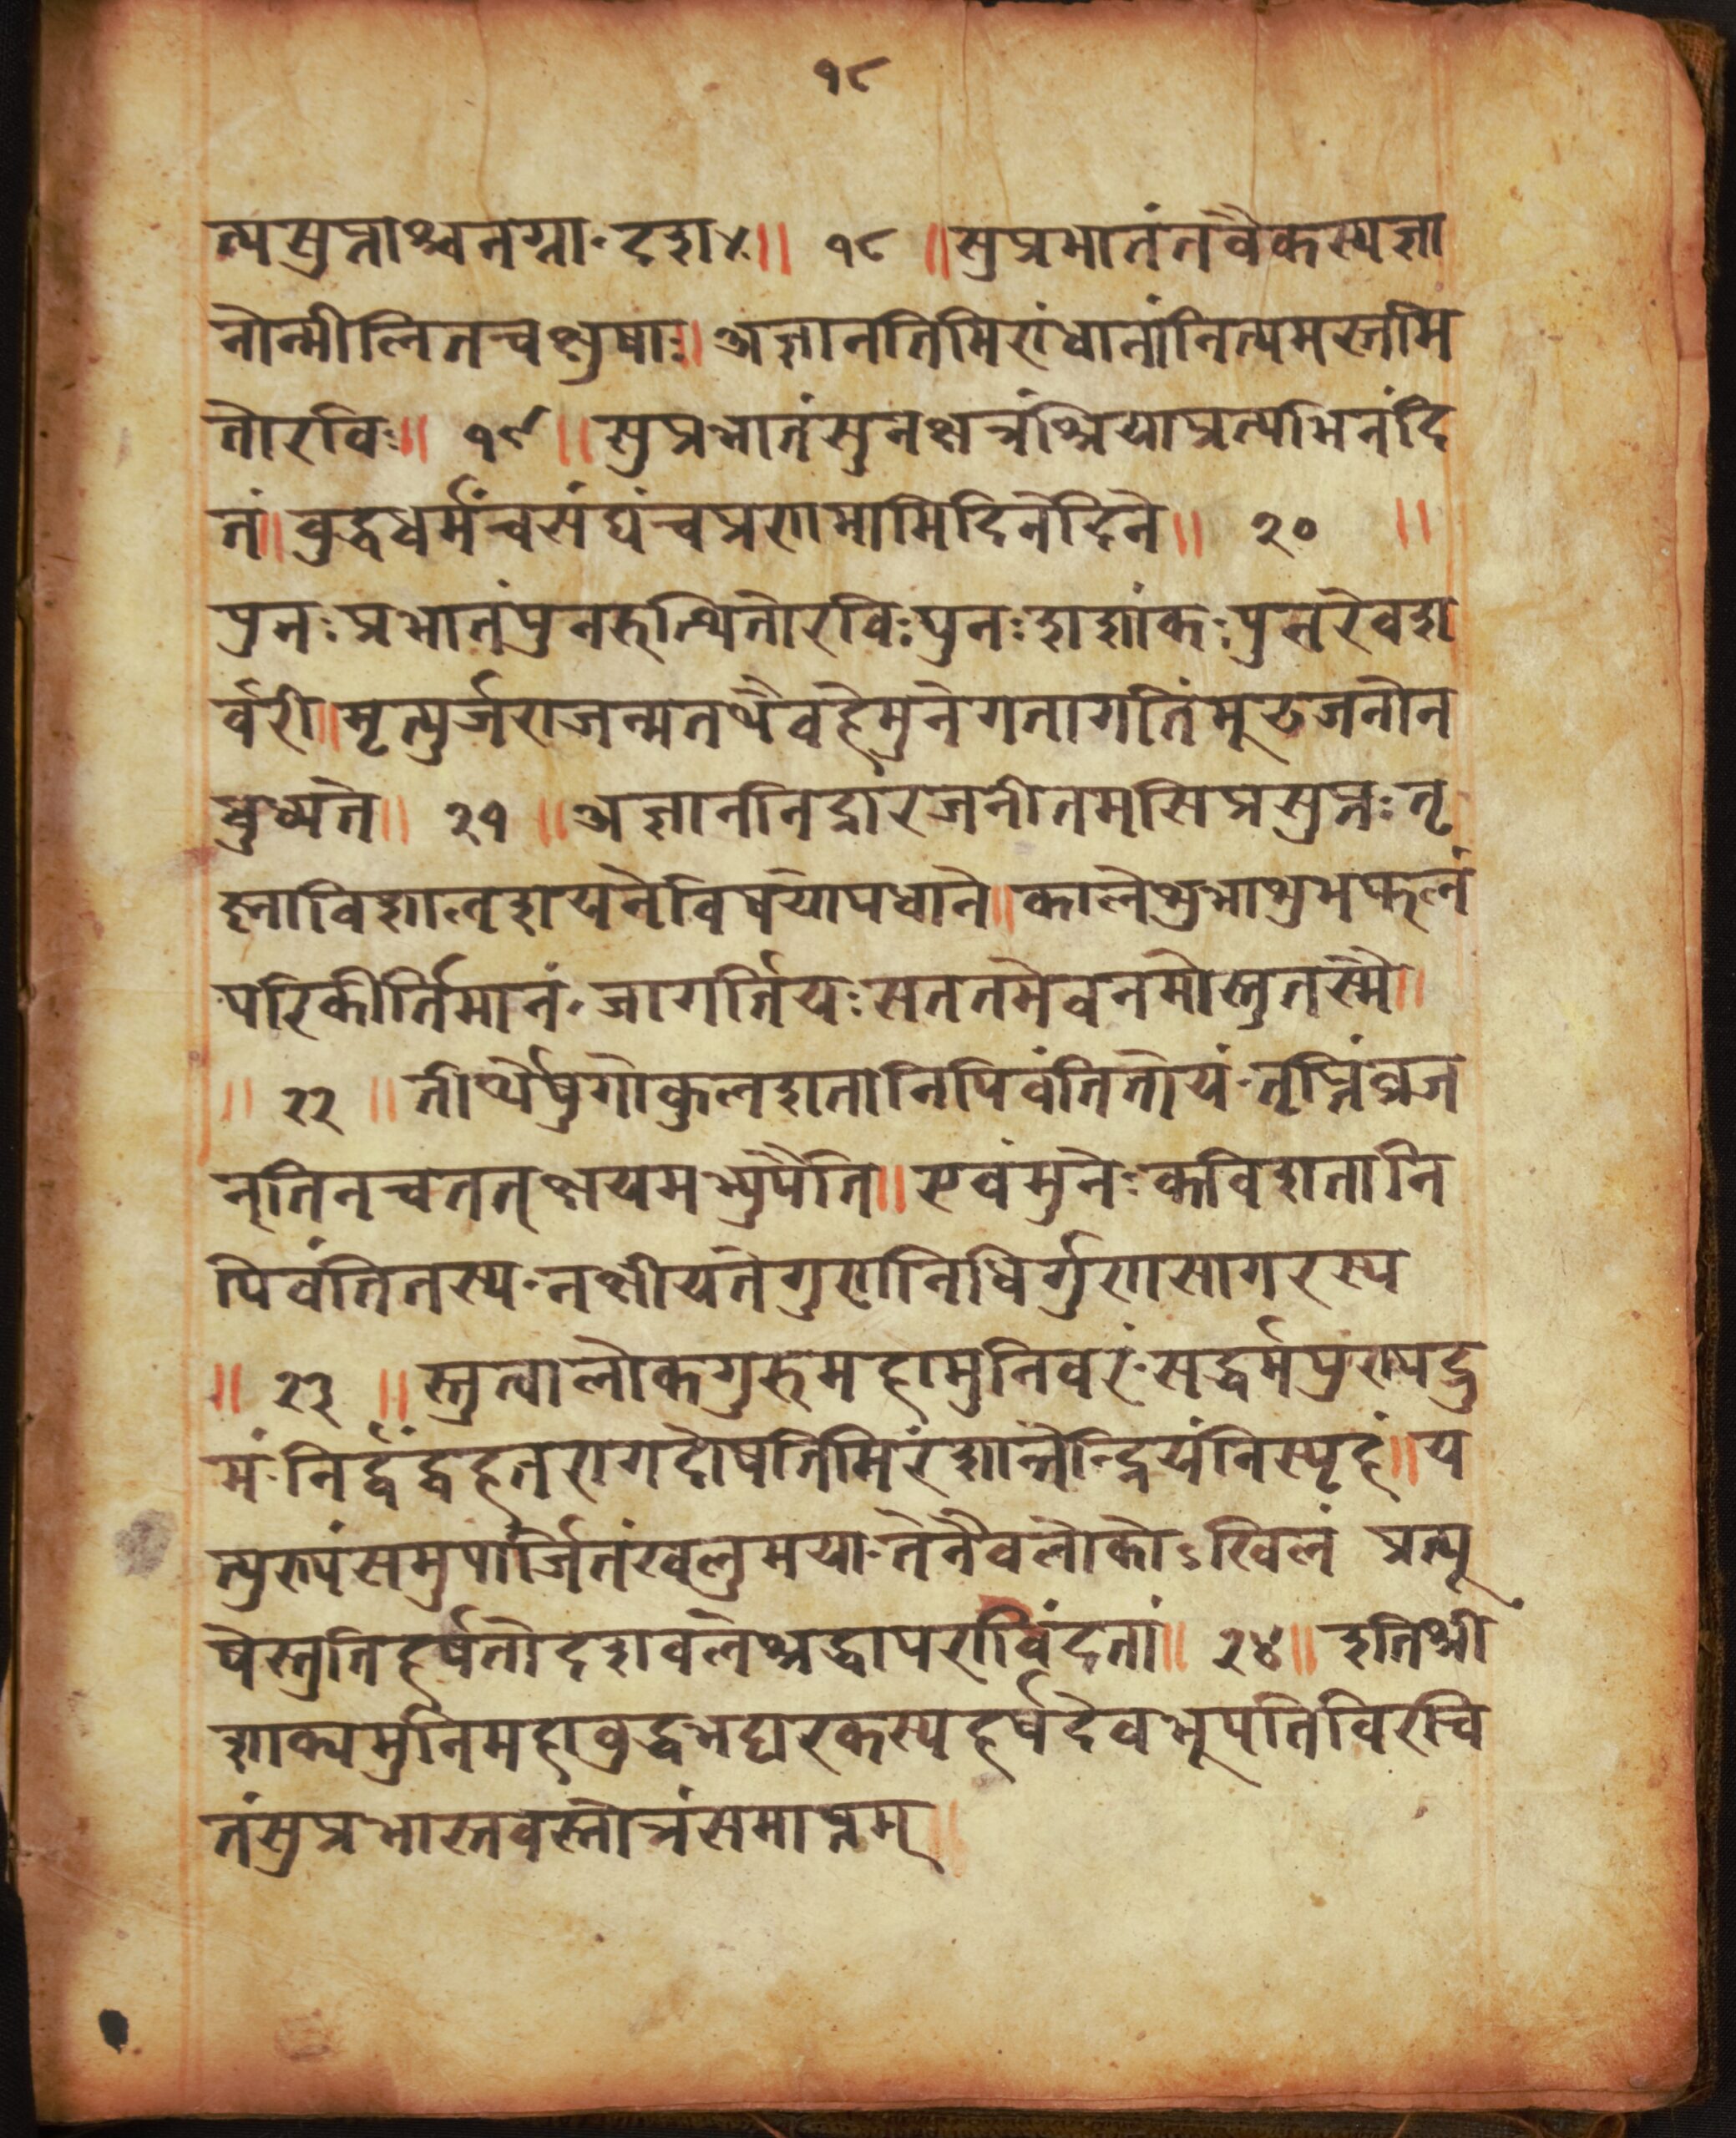 १८
त्यसुप्ताश्चनग्ना॰दृशा४॥ १८ ॥सुप्रभातंतवैकस्यज्ञा
नोन्मीलितचक्षुषाः॥अज्ञानतिमिरांधानांनित्यमस्तमि
तोरविः॥ १९ ॥सुप्रभातंसुनक्षत्रंश्रियाप्रत्यभिनंदि
तं॥वुद्धधर्मंचसंघंचप्रणमामिदिनेदिने॥ २० ॥
पुनःप्रभातंपुनरुत्थितोरविःपुनःशशांकःपुनरेवश
र्वरी॥मृत्युर्जराजन्मतथैवहेमुनेगतागतिंमूढजनोन
वुध्यते॥ २१ ॥अज्ञाननिद्रांरजनीतमसिप्रसुप्तःतृ
ष्नाविशालशयनेविषयोपधाने॥कालेशुभाशुभफलं
परिकीर्तिमानं॰जागर्तियःसततमेवनमोस्तुतस्मै॥
॥ २२ ॥तीर्थेषुगोकुलशतानिपिवंतितोयं॰तृप्तिंव्रज
न्तिनचतत्क्षयमभ्युपैति॥एवंमुनेःकविशतानि
पिवंतितस्य॰नक्षीयतेगुणनिधिर्गुणसागरस्य
॥ २३ ॥स्तुत्वालोकगुरुमहामुनिवरं॰सद्धर्मपुण्यद्रु
मं॰निर्द्वंद्वहतरागदोषतिमिरंशान्तेन्द्रियंनिस्पृहं॥य
त्पुण्यंसमुपार्जितंखलुमया॰तेनैवलोकोऽखिलं प्रत्यू
षेस्तुतिहर्षतोदशवलेश्रद्धापरांविंदतां॥ २४॥ इतिश्री
शाक्यमुनिमहावुद्धभट्टारकस्यहर्षदेवभूपतिविरचि
तंसुप्रभास्तवस्तोत्रंसमाप्तम्॥